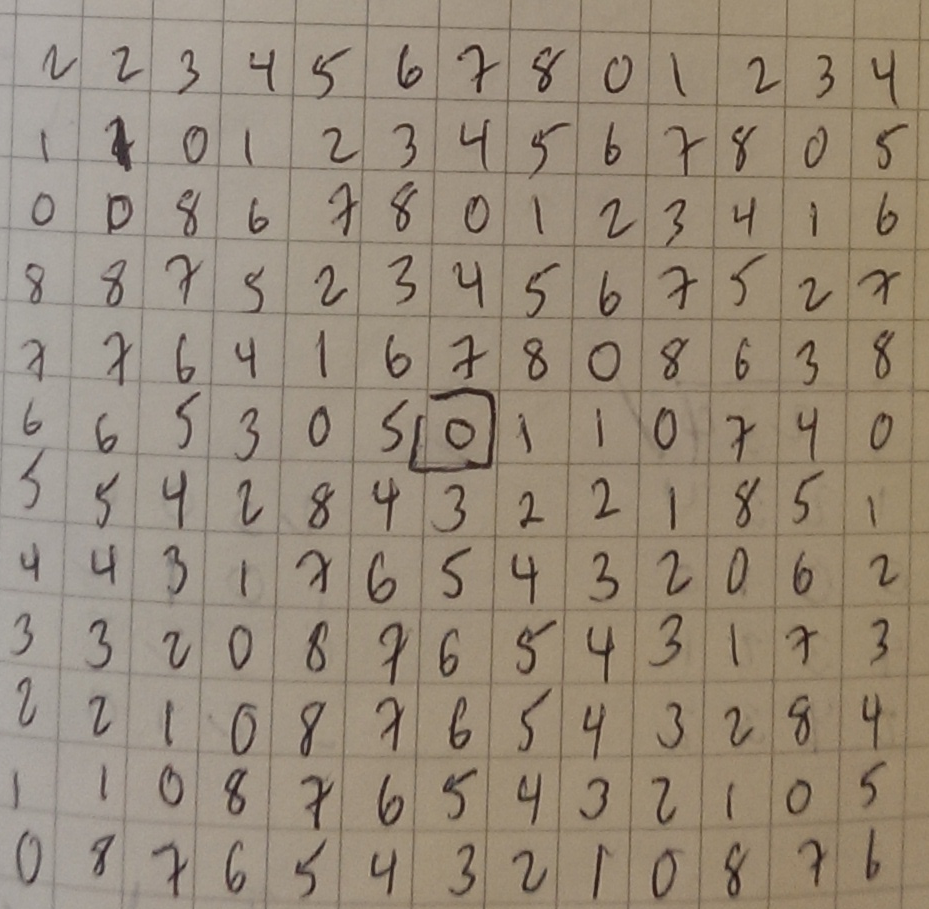 2 2 3 4 5 6 7 8 0 1 2 3 4
1 1 0 1 2 3 4 5 6 7 8 0 5
0 0 8 6 7 8 0 1 2 3 4 1 6
8 8 7 5 2 3 4 5 6 7 5 2 7
7 7 6 4 1 6 7 8 0 8 6 3 8
6 6 5 3 0 5 0 1 1 0 7 4 0
5 5 4 2 8 4 3 2 2 1 8 5 1
4 4 3 1 7 6 5 4 3 2 0 6 2
3 3 2 0 8 7 6 5 4 3 1 7 3
2 2 1 0 8 7 6 5 4 3 2 8 4
1 1 0 8 7 6 5 4 3 2 1 0 5
0 8 7 6 5 4 3 2 1 0 8 7 6